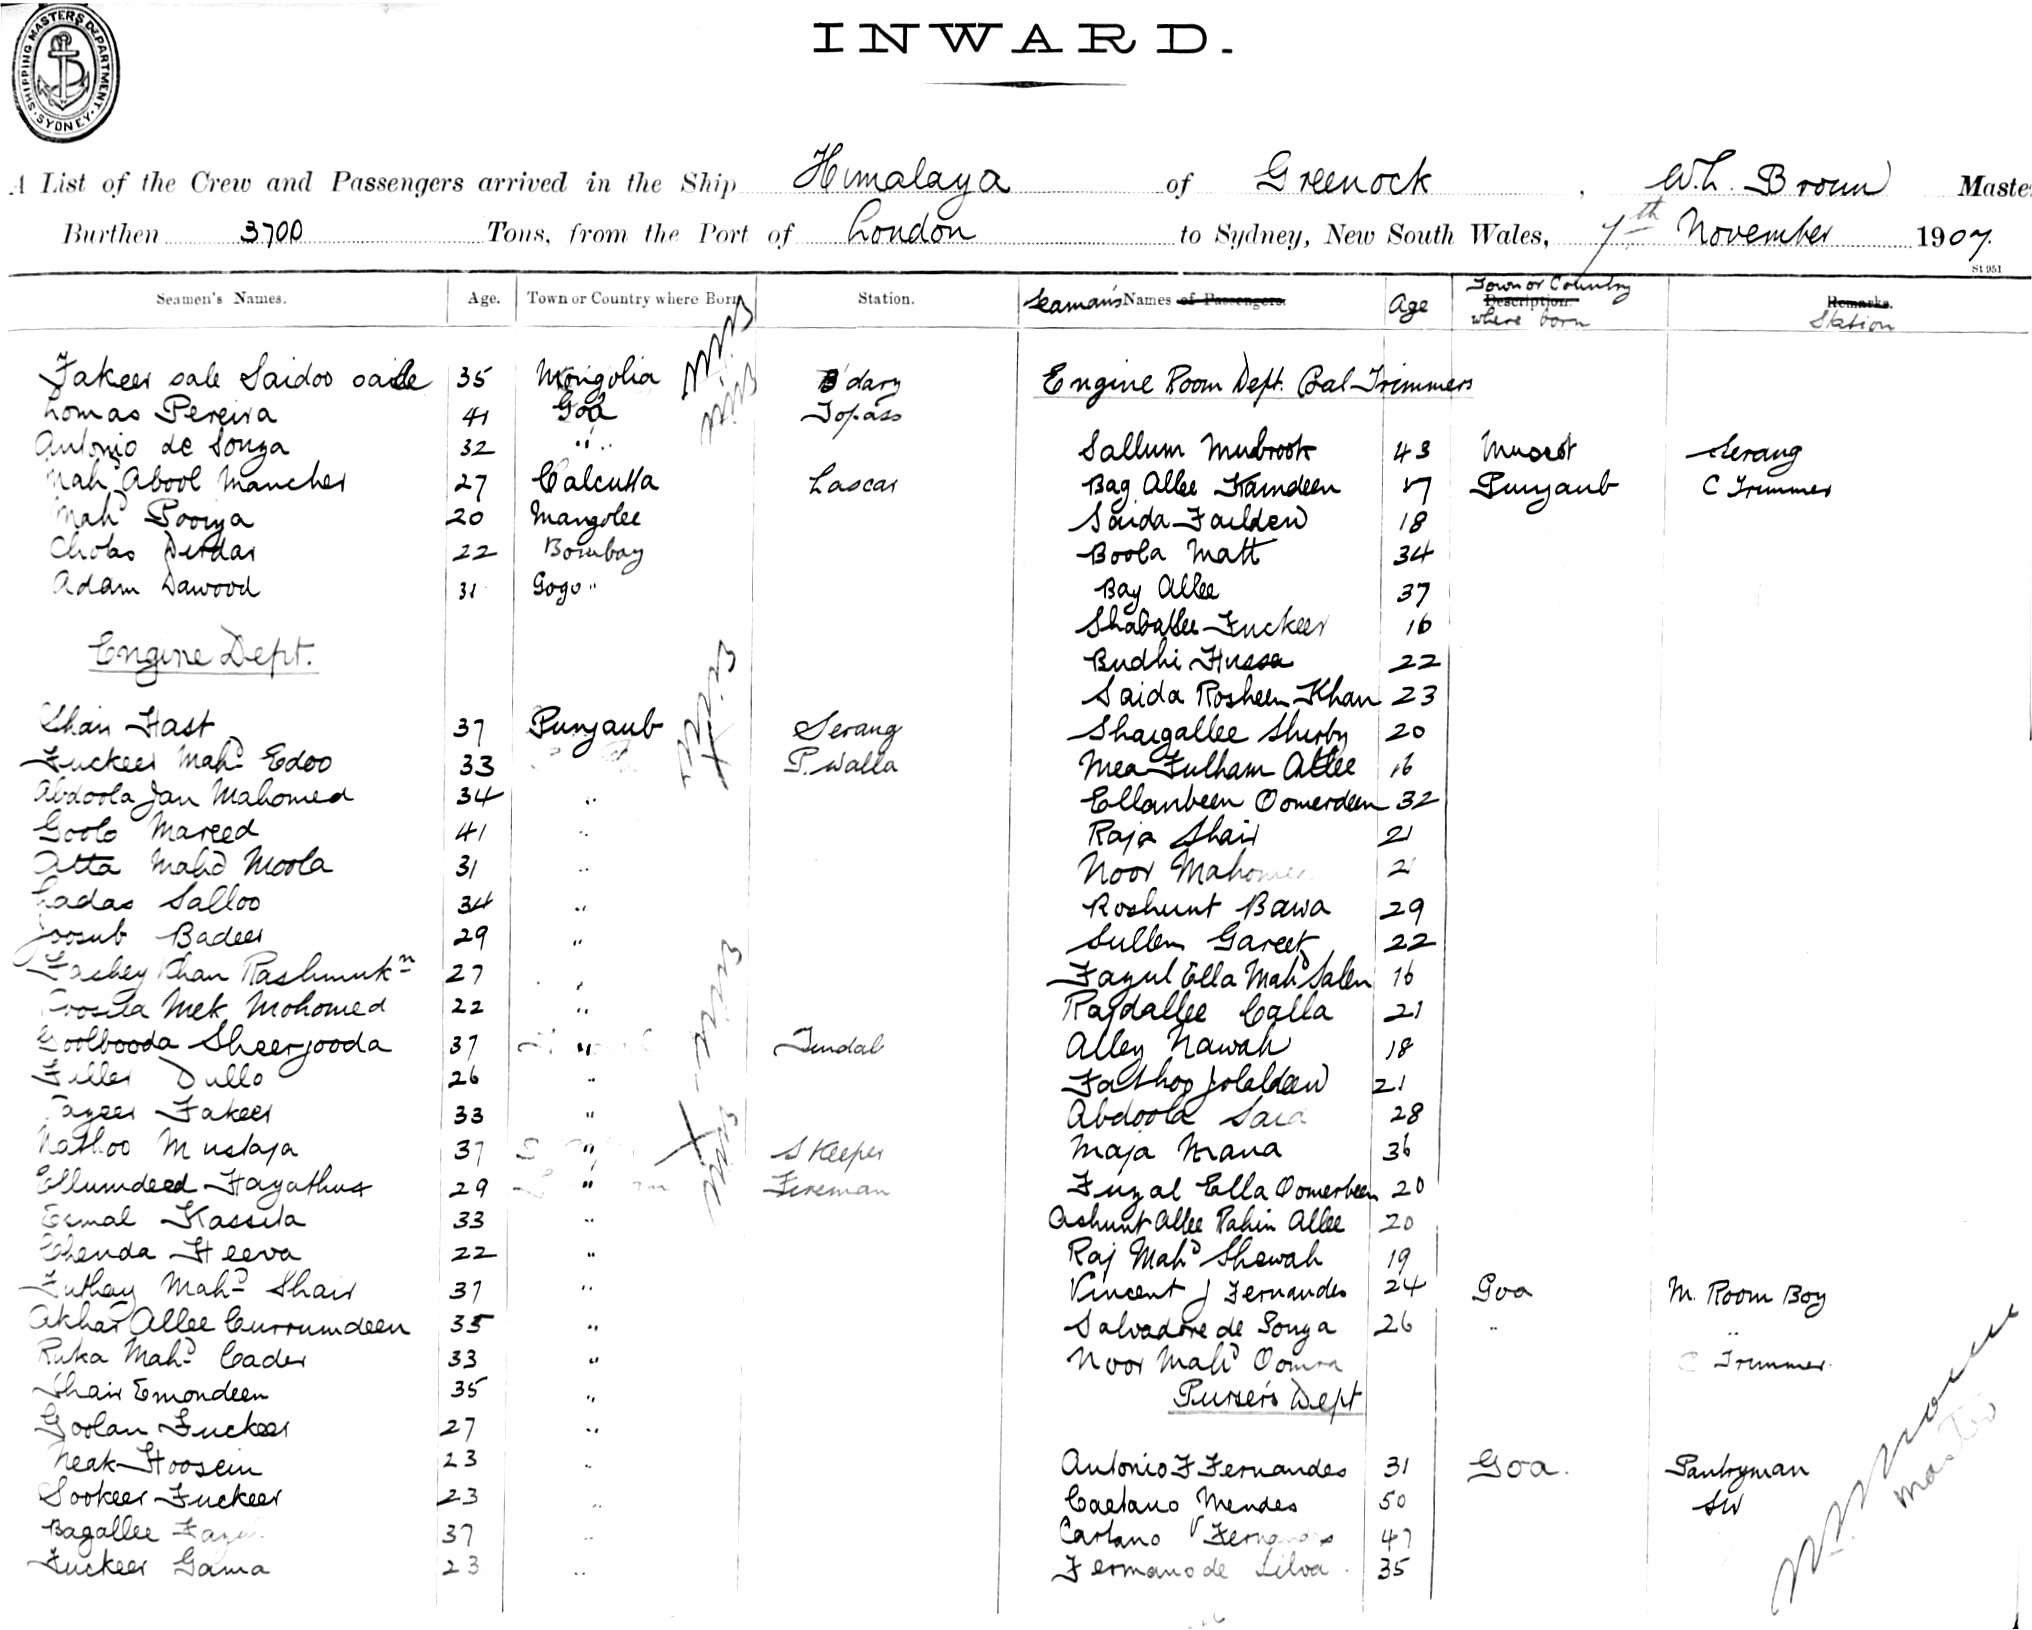 SHIPPING MASTERS DEPARTMENT. SYDNEY.
INWARD.
A List of the Crew and Passengers arrived in the Ship Himalaya of Greenock, W.L. Broun Maste
Burthen 3700 Tons, from the Port of London to Sydney, New South Wales, 7th November 1907.
St 951
Seamen's Names. Age. Town or Country where Born Station.
Fakeer sale Saidoo saile 35 Mongolia B'dary
Lomas Pereira 41 Goa Topass
Antonio de Souza 32 " "
Mahd Abool Mancher 27 Calcutta Lascar
Mahd Pooya 20 Mangolee
Chotas Dirdar 22 Bombay
Adam Dawood 31 Gogo "
Engine Dept.
Shair Hast 37 Punjaub Serang
Fuckeer Mahd Edoo 33 P. Walla
Abdoola Jan Mahomed 34 "
Goolo Mareed 41 "
Atta Mahd Moola 31 "
Ladas Salloo 34 "
Joosub Badeer 29 "
Fachey Khan Rashmukn 27 "
Mek Mohomed 22 "
Goolbooda Sheerjooda 37 " Tindal
Filler Dullo 26 "
Fakeer 33 "
Nathoo Mustaja 37 " S Keeper
Ellumdeed Hayathus 29 " Fireman
Esmal Kassila 33 "
Chenda Heeva 22 "
Futhay Mahd Shair 37 "
Akhar Allee Currumdeen 35 "
Ruka Mahd Cader 33 "
Shair Emondeen 35 "
Goolan Fuckeer 27 "
Neak Hoosein 23 "
Sookeer Fuckeer 23 "
Bagallee 37 "
Fuckeer Gama 23 "
Seaman's Names of Passengers. Age Description. Town or Country where born Remarks. Station
Engine Room Dept. Coal Trimmers
Sallum Mubrook 43 Muscat Serang
Bag Allee Kamdeen 17 Punjaub C Trimmer
Saida Failden 18
Boola Matt 34
Bag Allee 37
Shaballee Fuckeer 16
Budhi Hussa 22
Saida Rosheen Khan 23
Shaigallee Shirby 20
Mea Fulham Allee 16
Ellanbeen Oomerdeen 32
Raja Shair 21
Noor Mahomed 21
Roshunt Bawa 29
Sullem Gareet 22
Fazul Ella Mahd Salen 16
Rajdallee Calla 21
Alley Nawah 18
Fathoo Jolaldeen 21
Abdoola Said 28
Maja Mana 36
Fuzal Ella Oomerbeen 20
Ashunt Allee Rahim Allee 20
Raj Mahd Shewah 19
Vincent J Fernandes 24 Goa M. Room Boy
Salvadore de Souza 26 " "
Noor Mahd Oomra C Trimmer
Purser's Dept
Antonio F Fernandes 31 Goa. Pantryman
Caetano Mendes 50 SW
Caetano V Fernandes 47
Fermano de Silva 35
Master